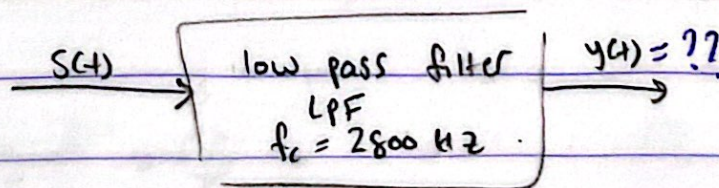 S(t)
low pass filter
y(t) = ??
LPF
fc = 2800 HZ